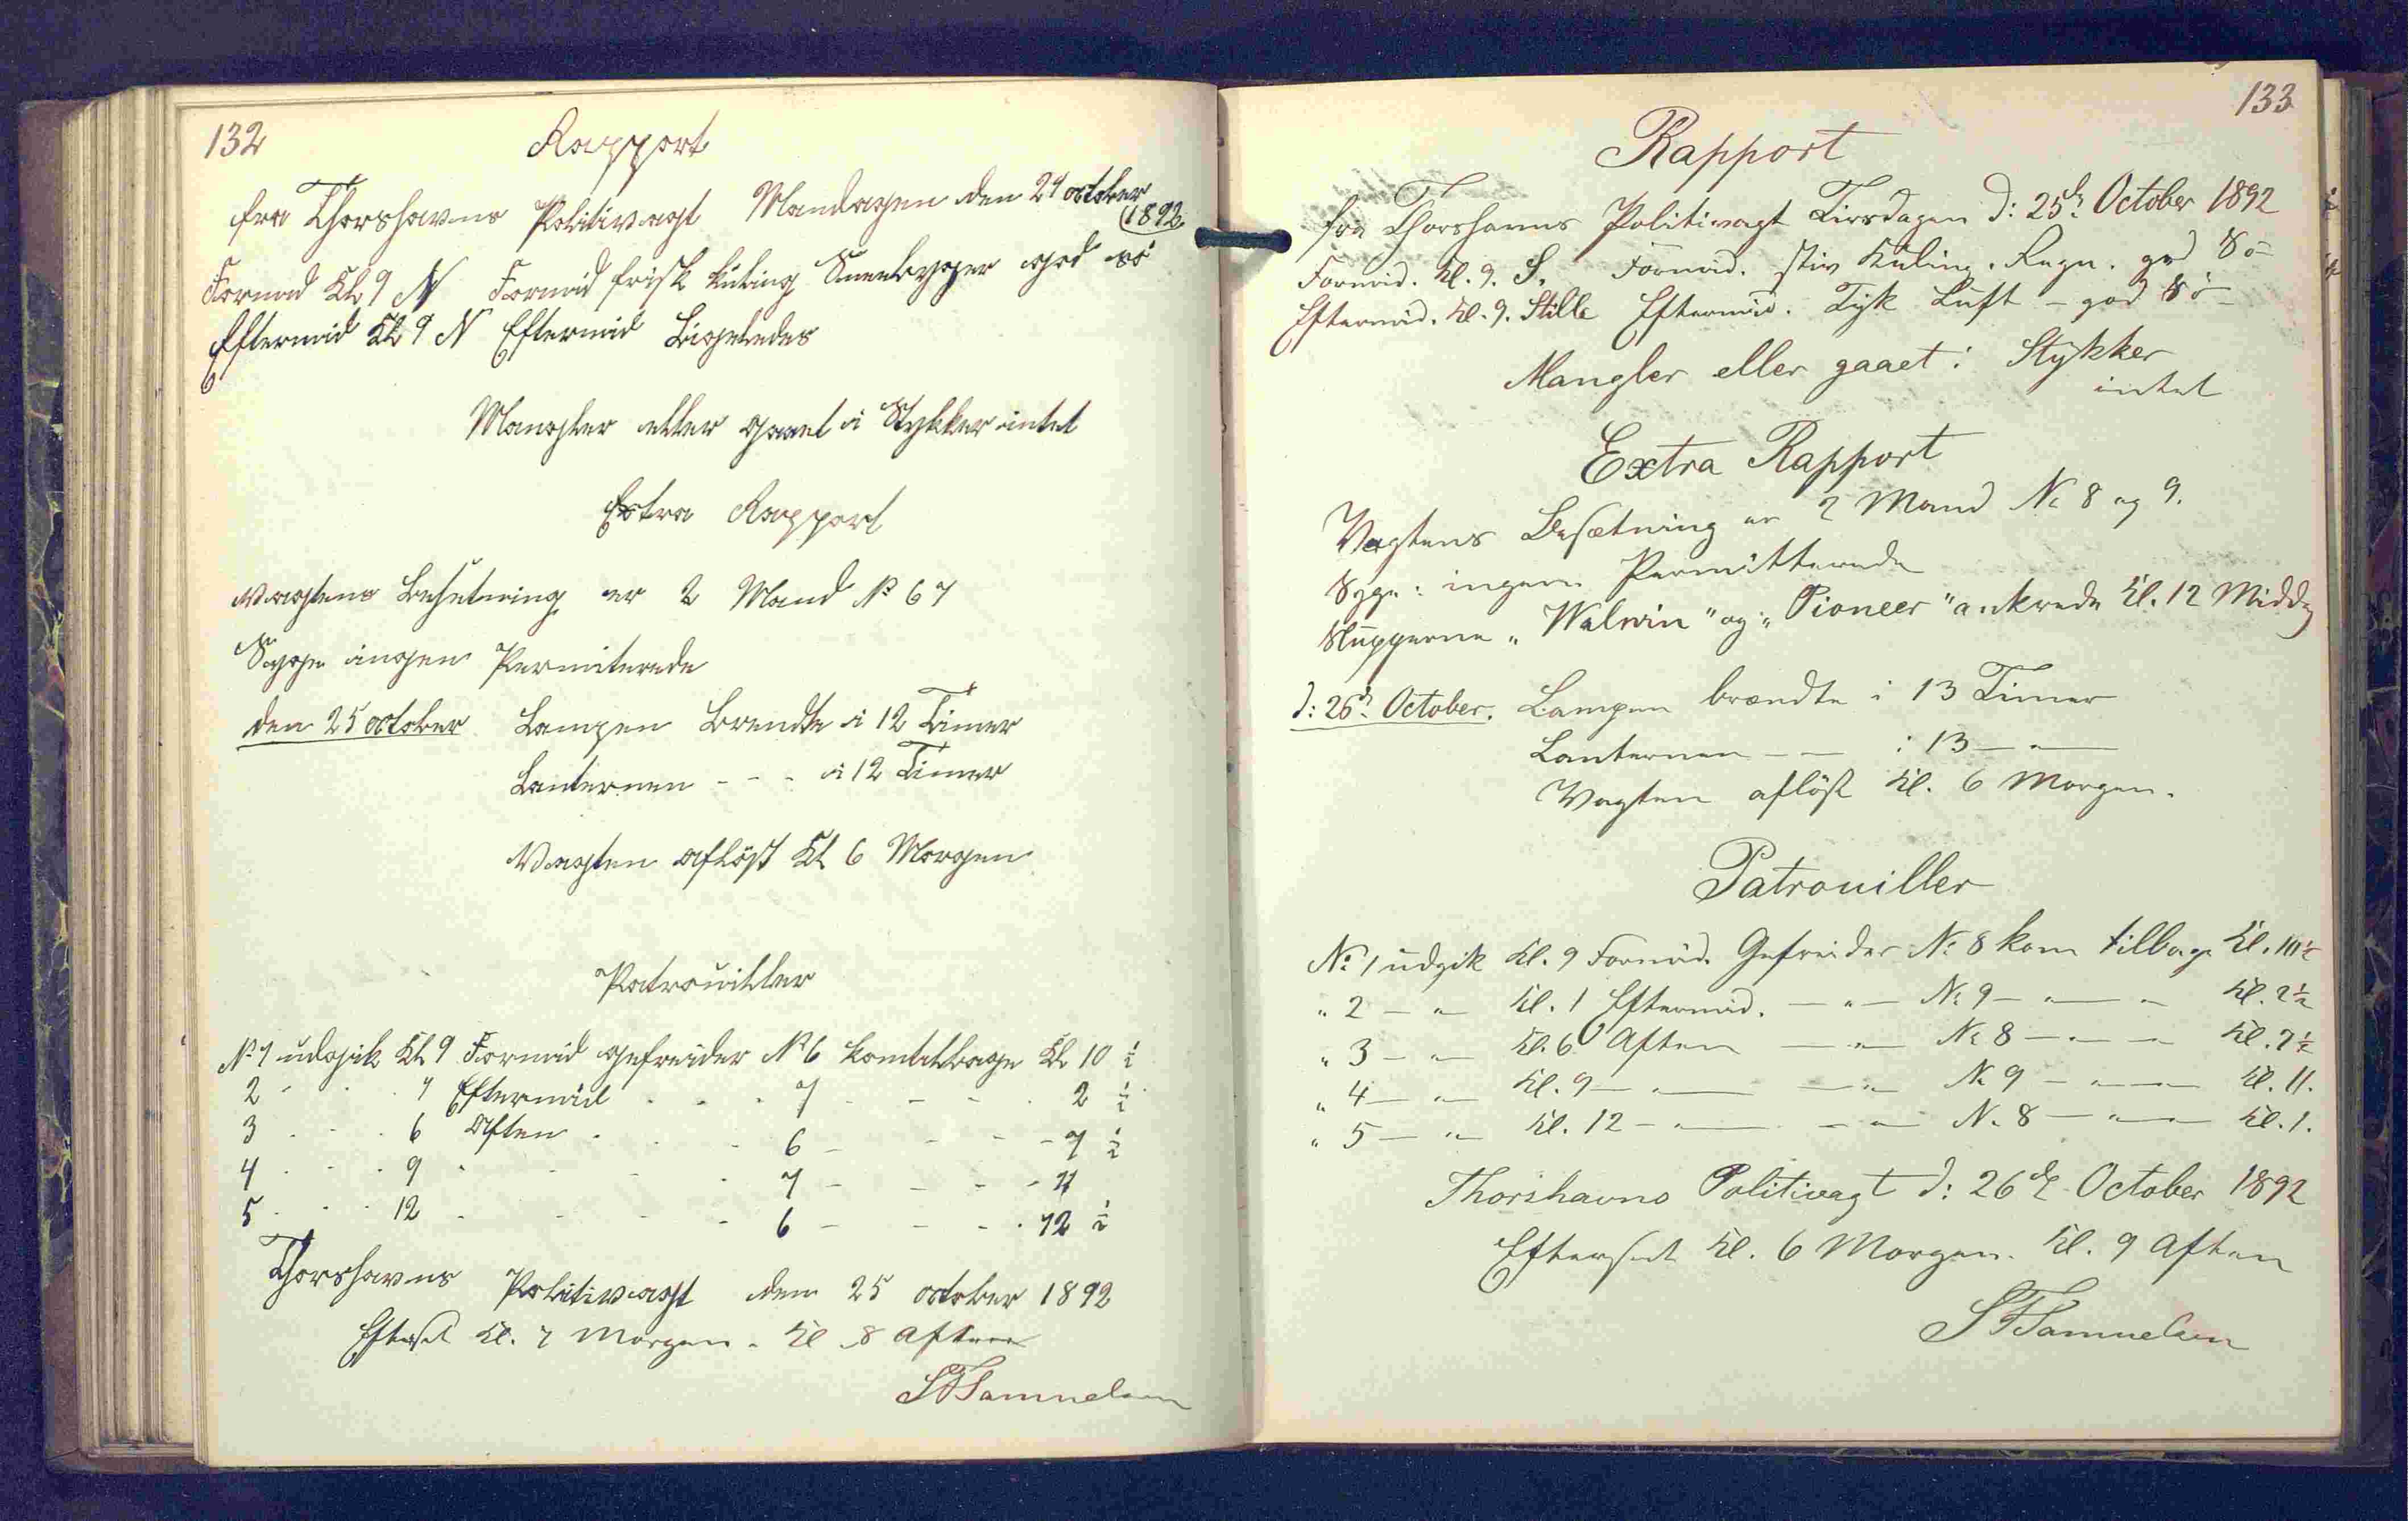 132
Rapport
fra Thorshavns Politivagt Mandagen den 24 october
1892
Formid Kl 9 N Formid frisk kuling Sneebyger god sö
Eftermid Kl 9 N Eftermid Ligeledes
Mangler eller gaaet i Stykker intet
Extra Rapport
Vagtens Besetning er 2 Mand No 6 7
Syge ingen Permiterede
den 25 october Lampen Brendte i 12 Timer
Lanternen - - - i 12 Timer
Vagten aflöst Kl 6 Morgen
Patrouiller
No 1 udgik Kl 9 Formid gefreider No 6 kom tilbage Kl 10 ½
2 " " " 1 Eftermid " " " 7 - - - 2 ½
3 " " " 6 Aften " " " 6 - - - 7 ½
4 " " " 9 " - - " 7 - - - 11
5 " " " 12 - - - - 6 - - - 12 ½
Thorshavns Politivagt den 25 october 1892
Efterset Kl. 7 Morgen - Kl 8 Aften
SFSamuelsen
133
Rapport
fra Thorshavns Politivagt Tirsdagen d: 25de October 1892
Formid. Kl. 9. S. Formid. stiv Kuling. Regn. god Sö
Eftermid. Kl. 9. Stille Eftermid. Tyk Luft - god Sö
Mangler eller gaaet i Stykker
intet
Extra Rapport
Vagtens Besætning er 2 Mand No 8 og 9.
Syge: ingen Permitterede
Slupperne "Walvin" og "Pioneer" ankrede Kl. 12 Middg
d: 26de October. Lampen brændte i 13 Timer
Lanternen - - i 13 - " -
Vagten aflöst Kl. 6 Morgen.
Patrouiller
No 1 udgik Kl. 9 Formid. Gefreider No 8 kom tilbage Kl. 10½
" 2 - " - Kl. 1 Eftermid. - " - No 9 - " - " - Kl. 2½
" 3 - " - Kl. 6 Aften - " - No 8 - " - " - Kl. 7½
" 4 - " - Kl. 9 - " - - " - No 9 - " - " - Kl. 11.
" 5 - " - Kl. 12 - " - - " - No 8 - " - " - Kl. 1.
Thorshavns Politivagt d: 26de October 1892
Efterset Kl. 6 Morgen. Kl. 9 Aften
SFSamuelsen